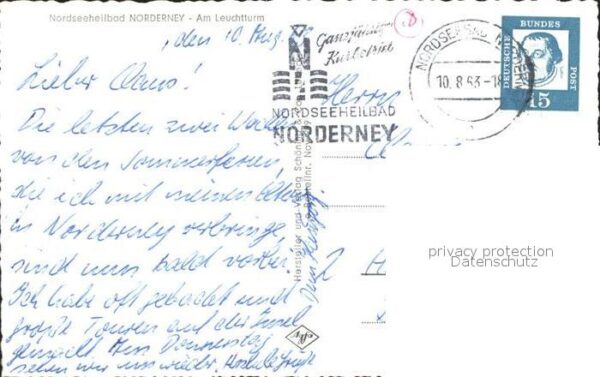 Nordseeheilbad NORDERNEY - Am Leuchtturm
den 10. Aug. 63
Lieber
Die letzten zwei Wochen
von den Sommerferien,
die ich mit meinen Eltern
in Norderney verbringe,
sind nun bald vorbei.
Ich habe oft gebadet und
große Touren auf der Insel
gemacht. Am Donnerstag
sehen wir uns wieder. Herzliche Grüße
Dein
Hersteller und Verlag Schöning
Ganzjährige
Kurbetrieb
NORDSEEHEILBAD
NORDERNEY
NORDSEEBAD
10.8.63-18
DEUTSCHE
BUNDES
POST
15
Herrn
2 H
privacy protection
Datenschutz